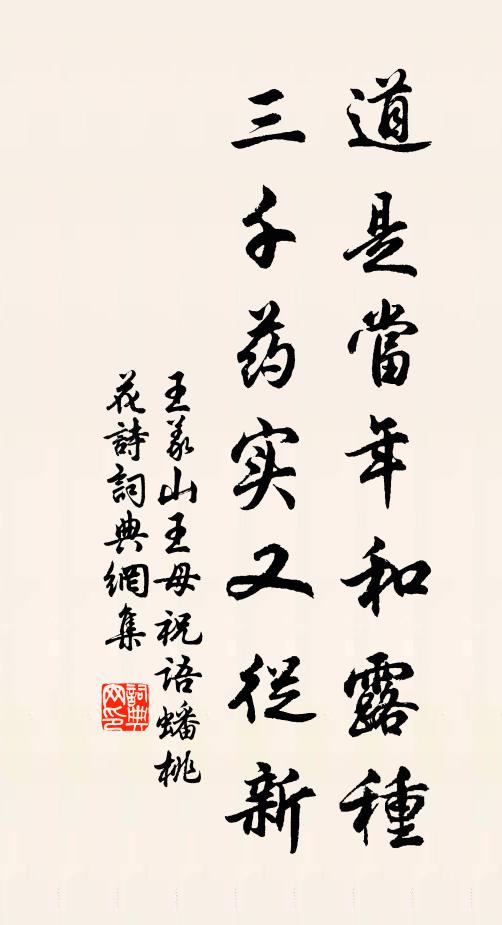 道是當年和露種
三千药实又從新
王义山王母祝語蟠桃
花詩詞典網集
詞典网印